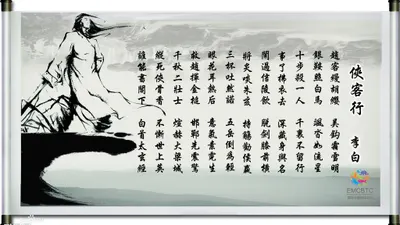 俠客行 李白
趙客縵胡纓 吳鉤霜雪明
銀鞍照白馬 颯沓如流星
十步殺一人 千里不留行
事了拂衣去 深藏身與名
閑過信陵飲 脫劍膝前橫
將炙啖朱亥 持觴勸侯嬴
三杯吐然諾 五岳倒為輕
眼花耳熱后 意氣素霓生
救趙揮金槌 邯鄲先震驚
千秋二壯士 煊赫大梁城
縱死俠骨香 不慚世上英
誰能書閣下 白首太玄經